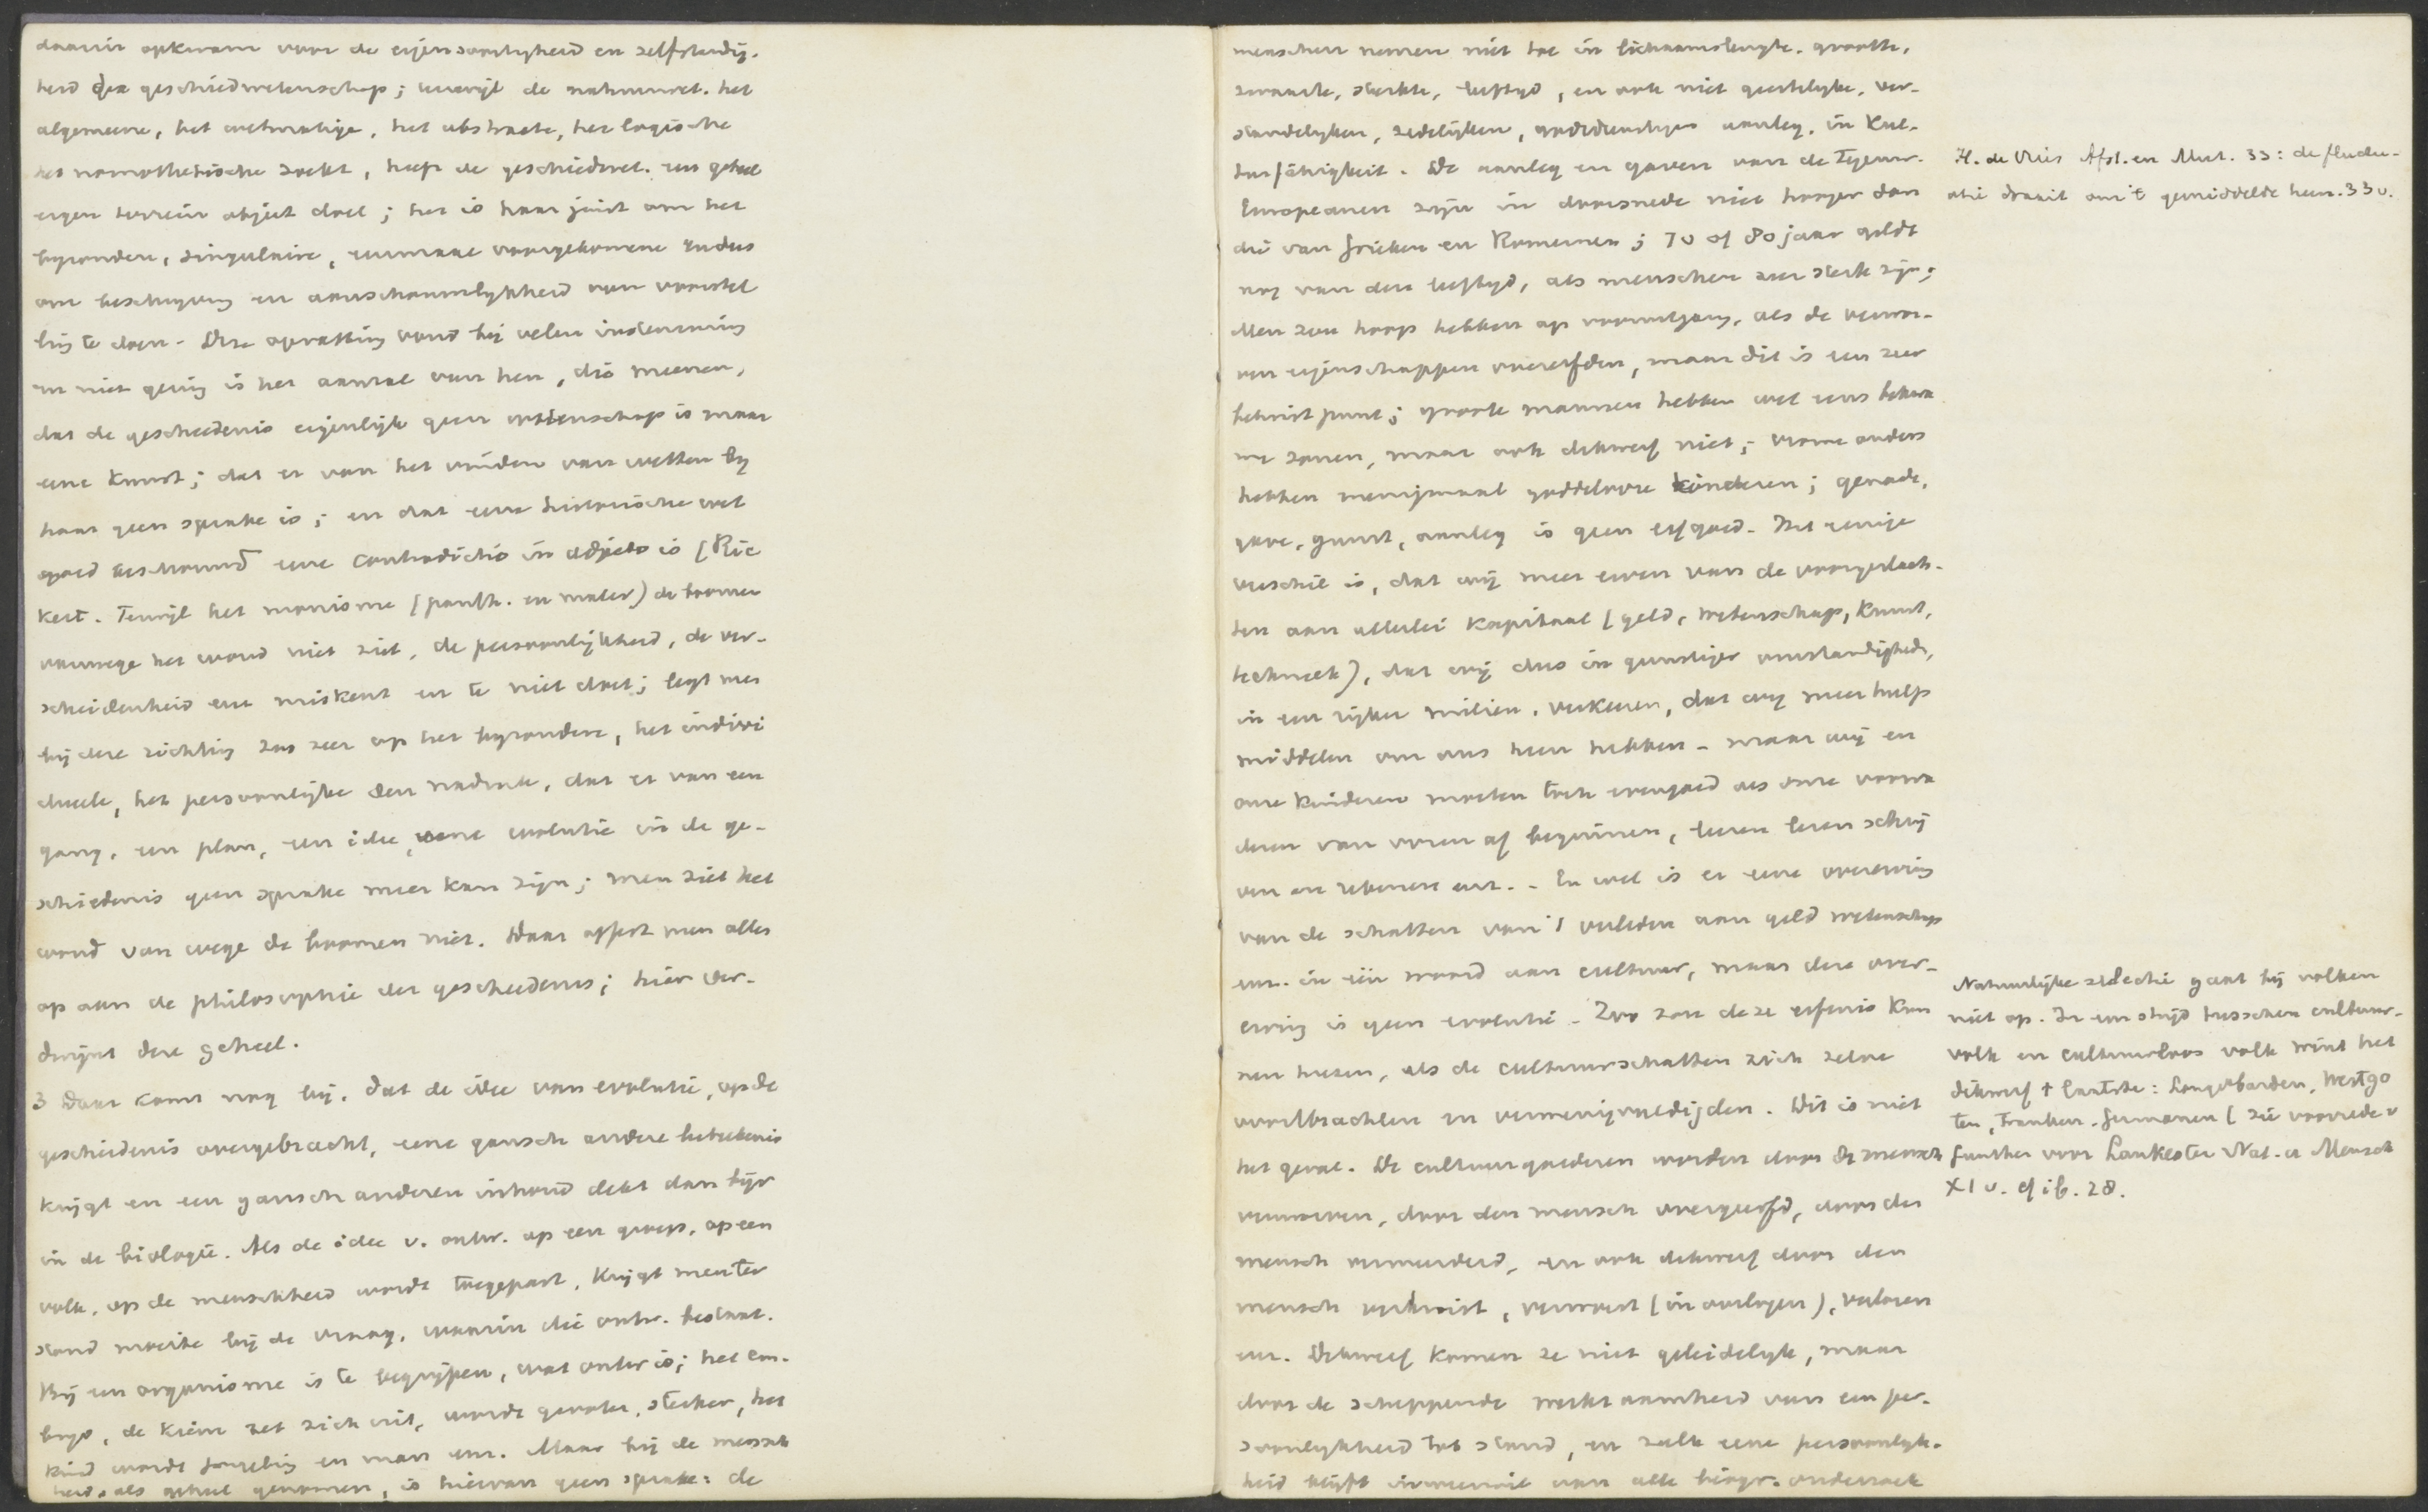 daarin opkwam voor de eigensoortigheid en zelfstandig-
heid der geschiedwetenschap; terwijl de natuurwet. het
algemeene, het wetmatige, het abstracte, het logische
het nomothetische zoekt, heeft de geschiedwet. een geheel
eigen terrein object doel; het is haar juist om het
byzondere, singulaire, eenmaal voorgekomene en dus
om beschryving en aanschouwelykheid van voorstel
ling te doen. Deze opvatting vond bij velen instemming
en niet gering is het aantal van hen, die meenen,
dat de geschiedenis eigenlijk geen wetenschap is maar
eene kunst; dat er van het vinden van wetten by
haar geen sprake is; en dat eene historische wet
goed beschouwd eene contradictio in adjecto is (Ric
kert. Terwijl het monisme (panth. en mater) de boomen
vanwege het woud niet ziet, de persoonlijkheid, de ver-
scheidenheid enz miskent en te niet doet; legt men
bij deze richting zoo zeer op het byzondere, het indivi
dueele, het persoonlijke den nadruk, dat er van een
gang, een plan, een idee, eene evolutie in de ge-
schiedenis geen sprake meer kan zijn; men ziet het
woud van wege de boomen niet. Daar offert men alles
op aan de philosophie der geschiedenis; hier ver-
dwijnt deze geheel.
3 Daar komt nog bij, dat de idee van evolutie, op de
geschiedenis overgebracht, eene gansch andere beteekenis
krijgt en een gansch anderen inhoud dekt dan byv
in de biologie. Als de idee v. ontw. op een groep, op een
volk, op de menschheid wordt toegepast, krijgt men ter
stond moeite bij de vraag, waarin die ontw. bestaat.
Bij een organisme is te begrijpen, wat ontw is; het em-
bryo, de kiem zet zich uit, wordt grooter, sterker, het
kind wordt jongeling en man enz. Maar bij de mensch
heid, als geheel genomen, is hiervan geen sprake: de
menschen nemen niet toe in lichaamslengte, grootte,
zwaarte, sterkte, leeftyd, en ook niet geestelyke, ver-
standelyken, zedelijken, godsdienstigen aanleg, in Kul-
turfähigkeit. De aanleg en gaven van de tegenw.
Europeanen zijn in doorsnede niet hooger dan
die van Grieken en Romeinen; 70 of 80 jaar geldt
nog van den leeftyd, als menschen zeer sterk zijn;
Men zou hoop hebben op vooruitgang, als de verwor-
ven eigenschappen overerfden, maar dit is een zeer
betwist punt; groote mannen hebben wel eens bekwa
me zonen, maar ook dikwerf niet; vrome ouders
hebben menigmaal goddelooze kinderen; genade,
gave, gunst, aanleg is geen erfgoed. Het eenige
verschil is, dat wij meer erven van de voorgeslach-
ten aan allerlei kapitaal (geld, wetenschap, kunst,
techniek), dat wij dus in gunstiger omstandigheden,
in een rijker milieu, verkeeren, dat wy meer hulp
middelen om ons heen hebben - maar wij en
onze kinderen moeten toch evengoed als onze voorva
deren van voren af beginnen, leeren lezen schrij
ven en rekenen enz. - En wel is er eene overerving
van de schatten van 't verleden aan geld wetenschap
enz. in één woord aan cultuur, maar deze over-
erving is geen evolutie. Zoo zou deze erfenis kun
nen heeten, als de cultuurschatten zich zelve
voortbrachten en vermenigvuldigden. Dit is niet
het geval. De cultuurgoederen worden door de mensch
verworven, door den mensch overgeerfd, door den
mensch vermeerderd, en ook dikwerf door den
mensch verkwist, verwoest (in oorlogen), verloren
enz. Dikwerf komen ze niet geleidelyk, maar
door de scheppende werkzaamheid van een per-
soonlykheid tot stand, en zulk eene persoonlyk-
heid blijft in weerwil van alle biogr. onderzoek
H. de Vries Afst. en Mut. 33: de fluctu-
atie draait om 't gemiddelde heen. 33 v.
Natuurlijke selectie gaat bij volken
niet op. In een strijd tusschen cultuur-
volk en cultuurloos volk wint het
dikwerf 't laatste: Longobarden, Westgo
ten, Franken, Germanen (zie voorrede v
Gunther voor Lankester Nat. en Mensch
XI v. cf ib. 28.